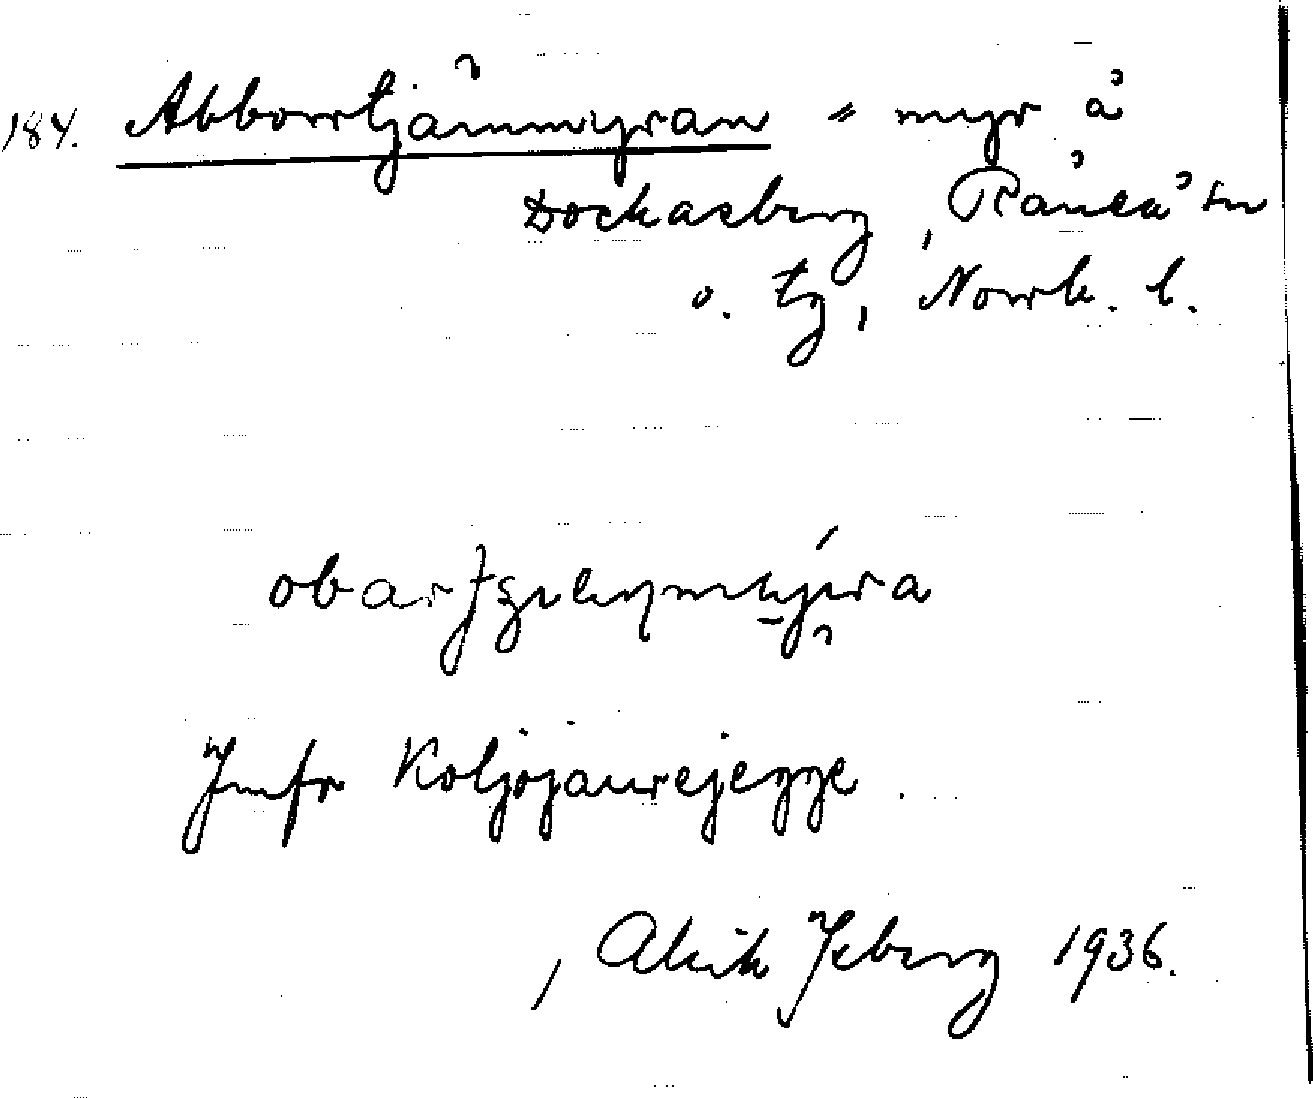 184. Abborrtjärnmyran = myr å
Dockasberg, Råneå sn
o. tg, Norrb. l.
Jmfr Koljojaurejegge.
Alrik Isberg 1936.